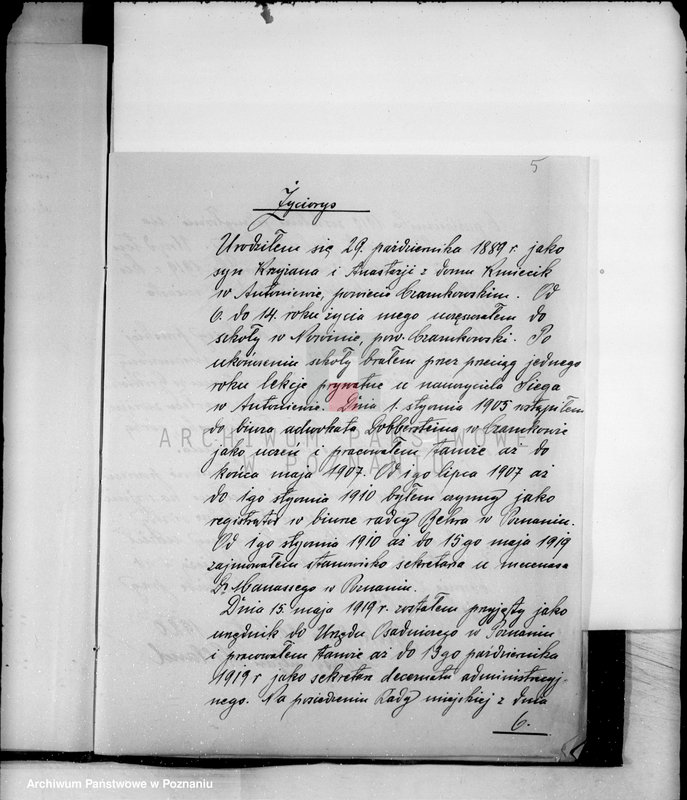 5
Życiorys
Urodziłem się 29. października 1889 r. jako
syn Kryjana i Anastazji z domu Kmiecik
w Antoniewie, powiecie Czarnkowskim. Od
6. do 14. roku życia mego uczęszczałem do
szkoły w Nowinie, pow. Czarnkowski. Po
ukończeniu szkoły brałem przez przeciąg jednego
roku lekcje prywatne u nauczyciela Fliega
w Antoniewie. Dnia 1. stycznia 1905 wstąpiłem
do biura adwokata Lobbersteina w Czarnkowie
jako uczeń i pracowałem tamże aż do
końca maja 1907. Od 1go lipca 1907 aż
do 1go stycznia 1910 byłem czynny jako
registrator w biurze radcy Behra w Poznaniu.
Od 1go stycznia 1910 aż do 15-go maja 1919
zajmowałem stanowisko sekretarza u mecenasa
Dr Manassego w Poznaniu.
Dnia 15. maja 1919 r. zostałem przyjęty jako
urzędnik do Urzędu Osadniczego w Poznaniu
i pracowałem tamże aż do 13go października
1919 r jako sekretarz decernatu administracyj-
nego. Na posiedzeniu Rady miejskiej z dnia
6.
ARCHIWUM PAŃSTWOWE
W POZNANIU
Archiwum Państwowe w Poznaniu